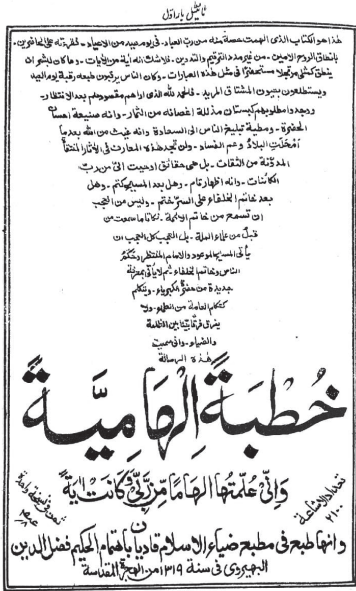 ٹائٹل بار اوّل
هٰذا هو الكتاب الذى الهمت حصة منه من رب العباد۔ فى يوم عيد من الاعياد۔ فقرءته على الحاضرين
بانطاق الروح الامين۔ من غير مدد الترقيم والتدوين۔ فلا شك انه اٰية من الاٰيات۔ وما كان لبشر ان
ينطق كمثلى مرتجلًا مستحضرًا فى مثل هذه العبارات۔ وكان الناس يرقبون طبعه رقبة يوم العيد
ويستطلعون بعيون المشتاق المريد۔ فالحمد لله الذى اراهم مقصودهم بعد الانتظار
ووجدوا مطلوبهم كبستان مذللة اغصانه من الثمار۔ وانه صنيعة احسان
الحضرة۔ ومطية تبليغ الناس الى السعادة وانه غيث من الله بعد ما
امحلت البلاد وعم الفساد۔ ولن تجد هذه المعارف فى الاٰثار المنتقاة
المدوّنة من الثقات۔ بل هى حقائق اوحيت الىّ من رب
الكائنات۔ وانه اظهار تام۔ وهل بعد المسيح كتم۔ وهل
بعد خاتم الخلفاء على السرّ ختم۔ وليس من العجب
ان تسمع من خاتم الائمة۔ نكاتا ما سمعت من
قبل من علماء الملة۔ بل العجب كل العجب ان
يأتى المسيح الموعود والامام المنتظر وحَكم
الناس وخاتم الخلفاء۔ ثم لا يأتى بمعرفة
جديدة من حضرة الكبرياء۔ ويتكلم
كتكلم العامة من العلماء ولا
يفرق فرقا بيّنا بين الظلمة
والضياء۔ وانى سميت
هذه الرسالة
خُطبَةً اِلهَامِيَّةً
وَاِنِّى عُلّمتُهَا اِلهَامًا مِّن رَّبِّى وَكَانَت اٰيَة
تعداد الاشاعة
۲۱۰۰
ثمن فى نسخة واحدة
وانها طبع فى مطبع ضياء الاسلام قاديان باهتمام الحكيم فضل الدين
البهيروى فى سنة ۱۳۱۹ من الهجرة المقدسة